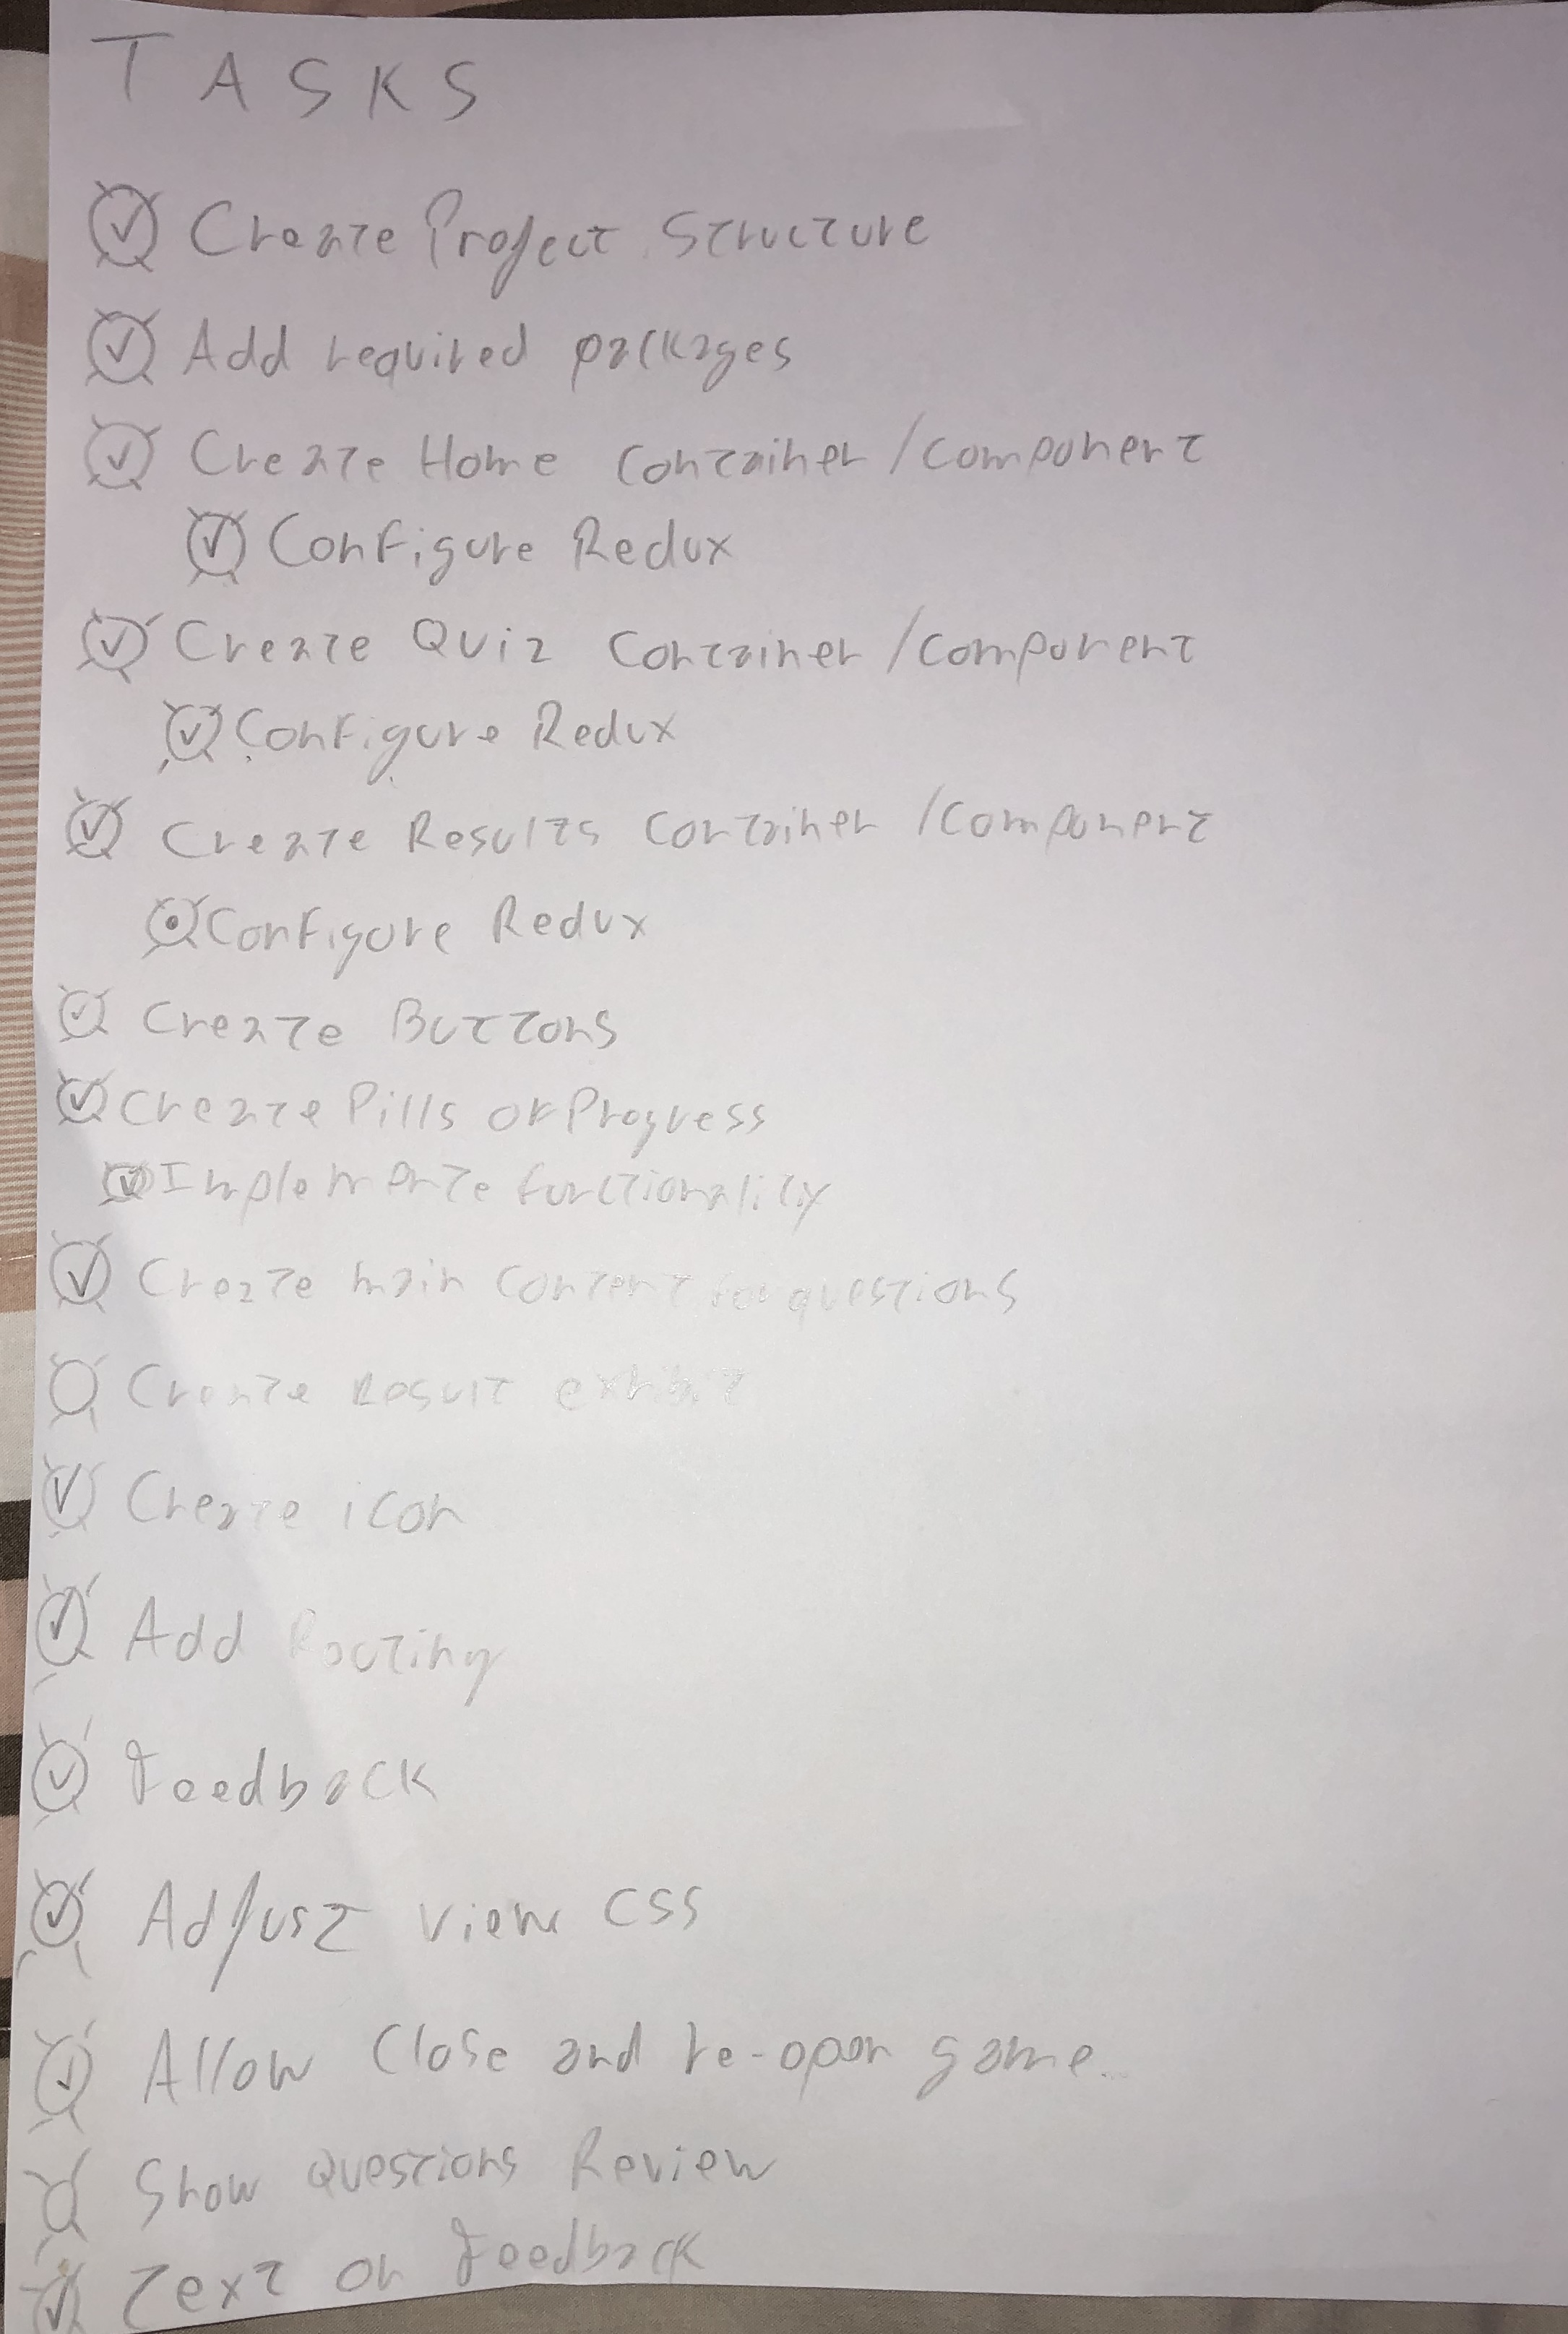 TASKS
Create Project Structure
Add required packages
Create Home container/component
Configure Redux
Create Quiz container/component
Configure Redux
Create Results container/component
Configure Redux
Create Buttons
Create Pills of Progress
Implemente functionality
Create main content for questions
Create Result exhibit
Create icon
Add Routing
Feedback
Adjust view CSS
Allow Close and re-open game
Show Questions Review
Text on Feedback